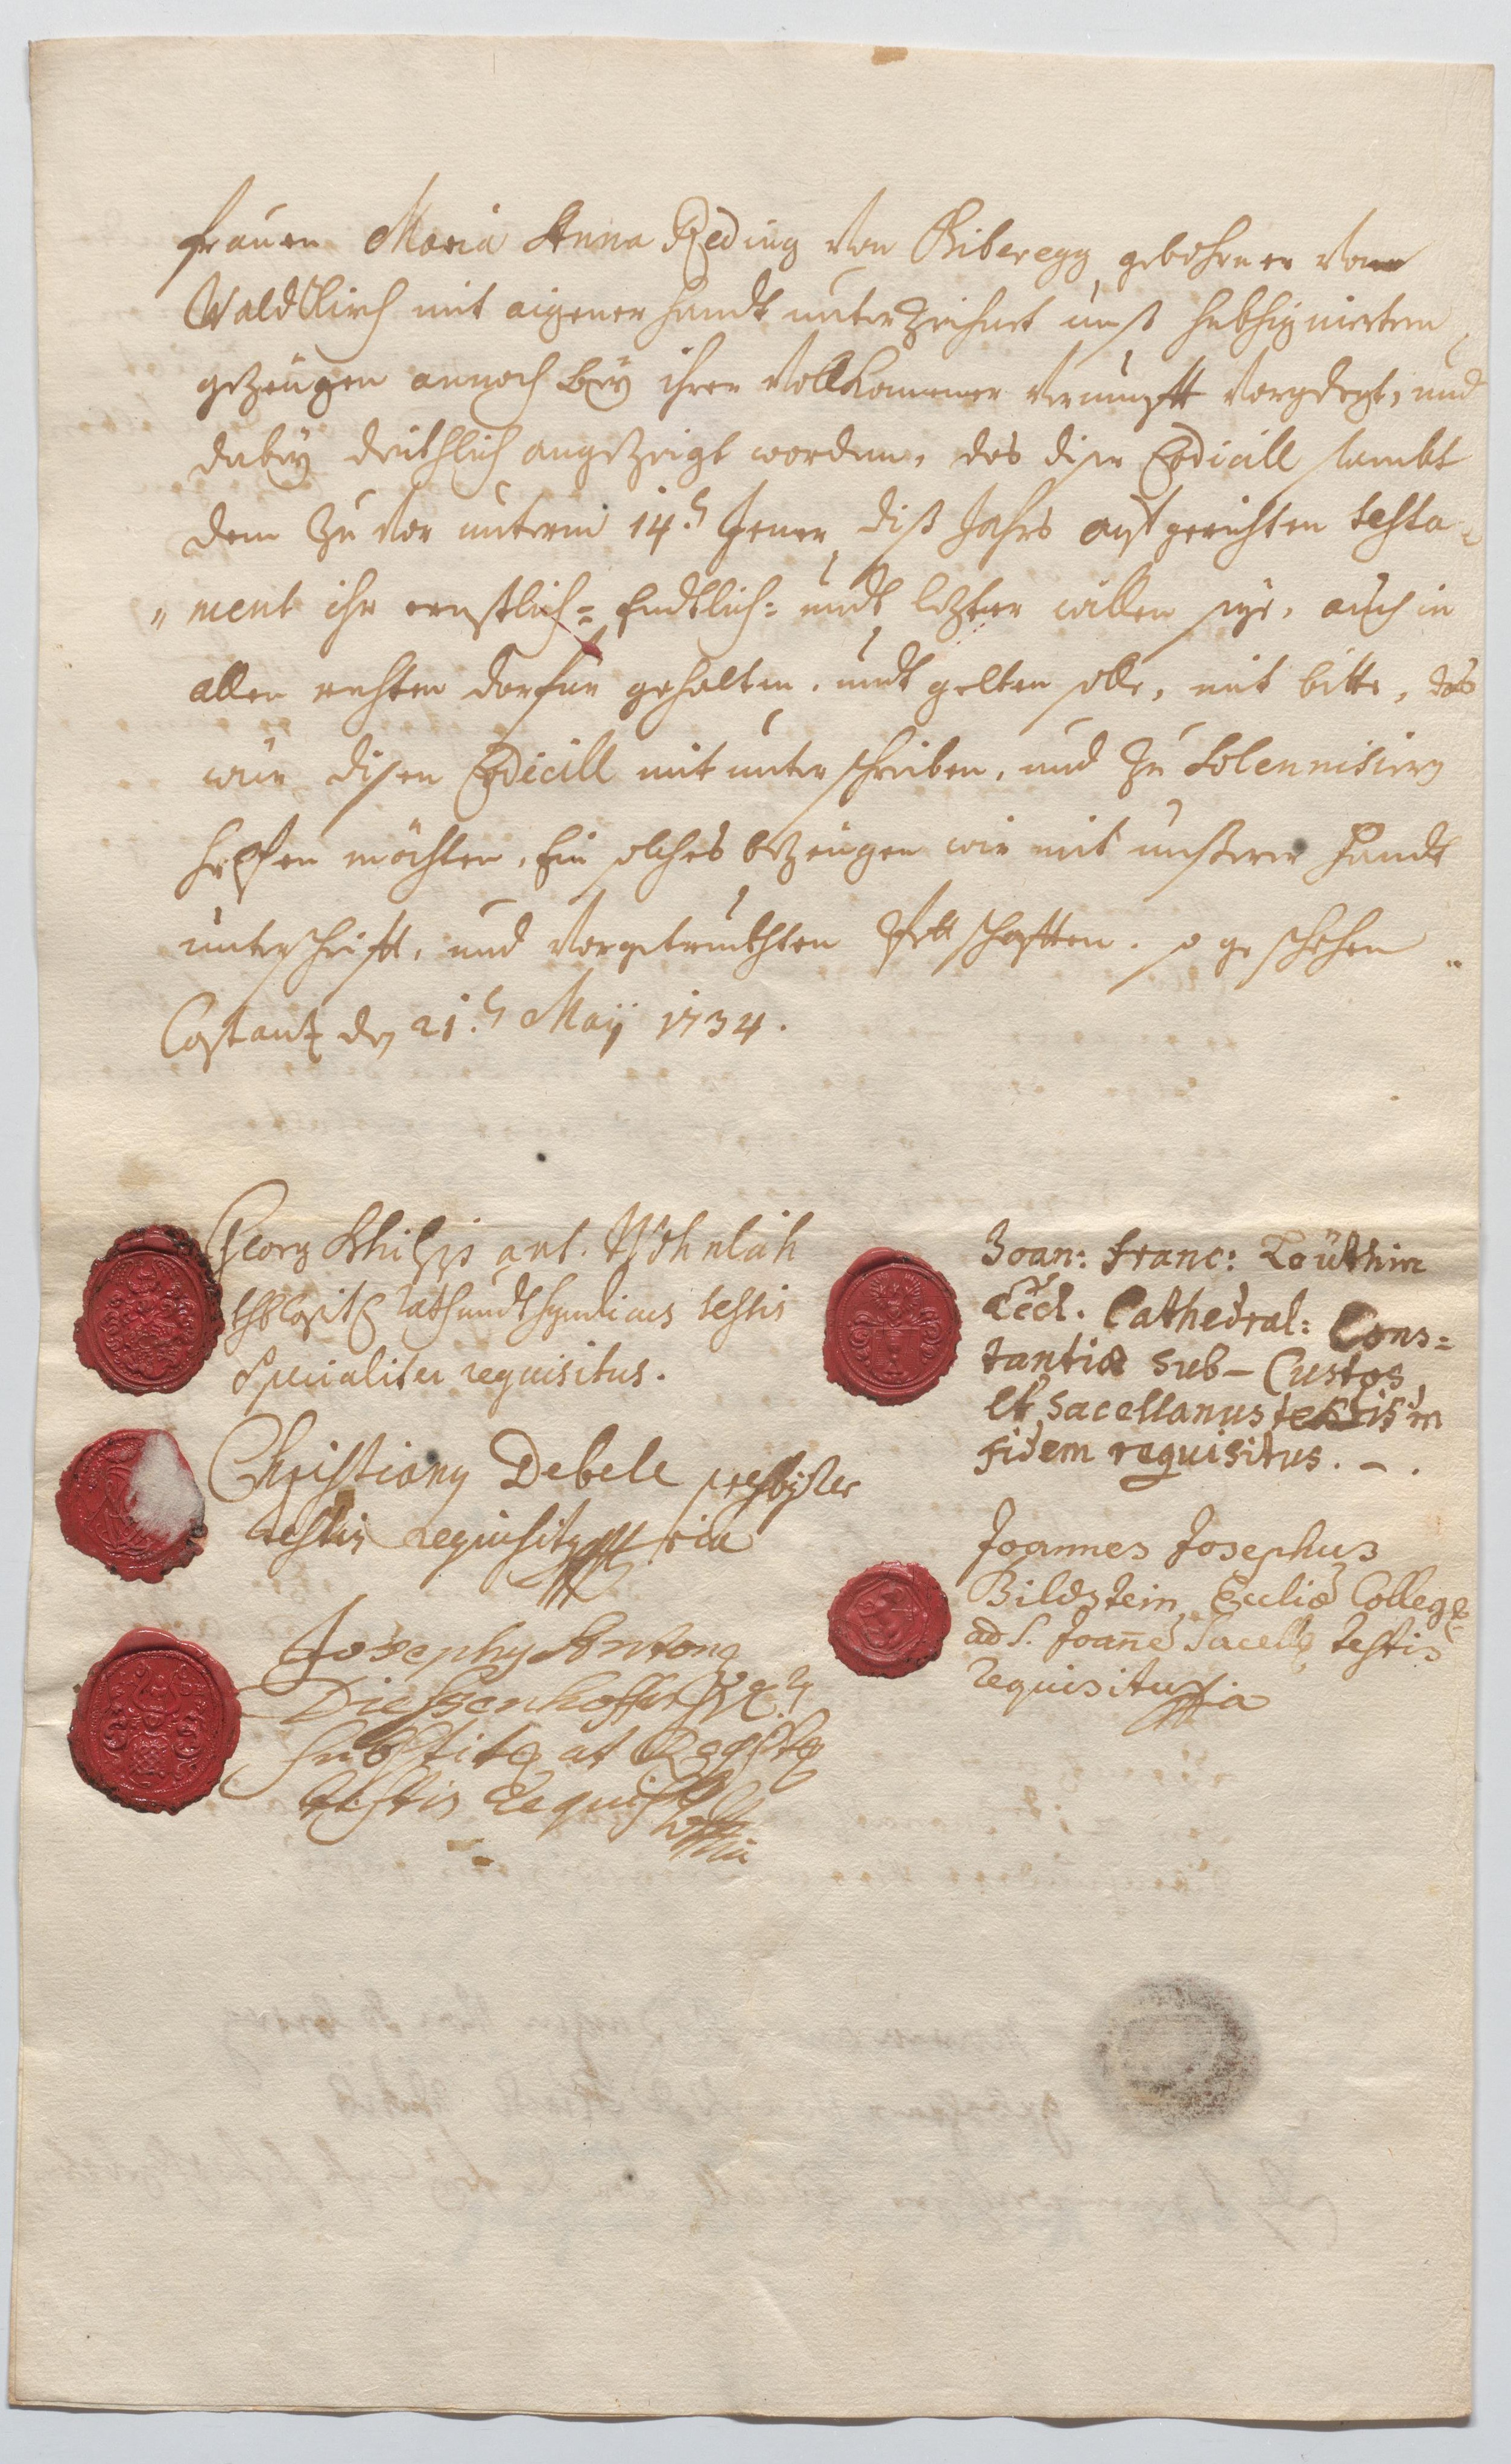 frauen Maria Anna Reding von Biberegg, gebohrner von
Waldkirch mit aigener handt unterzeichnet unß subsignierten
gezeügen annoch beÿ ihrer vollkommner vernunfft vorgelegt, und
dabeÿ deüthlich angezeigt worden, das diser Codicill sambt
dem zu vor unterm 14.t Jener diß Jahrs aufgerichten testa=
"ment ihr ernstlich= Endtlich= undt lezter willen seÿe, auch in
allen rechten darfür gehalten, undt gelten solle, mit bitte, das
wür disen Codicill mit unterschreiben, und zu Solennisieren
helffen möchten, Ein solches bezeügen wir mit unßerer handt
unterschrifft, und vorgetruckhten Pettschafften. so geschehen
Costantz den 21.t Maÿ 1734.
Georg Philipp ant.
rath undt syndicus testis
Specialiter requisitus.
Christianus Debele presbyter
testis requisitus mppria
Josephus Antonius
Diessenhoffer
substitus et Registr
testis Requisitus
mppria
Joan: Franc:
Eccl. Cathedral: Cons=
tantiæ sub-Custos
et sacellanus testis in
fidem requisitus. - .
Joannes Josephus
Bildstein, Eccliæ Colleg
ad S. Joannē Sacellus testis
requisitus mppria